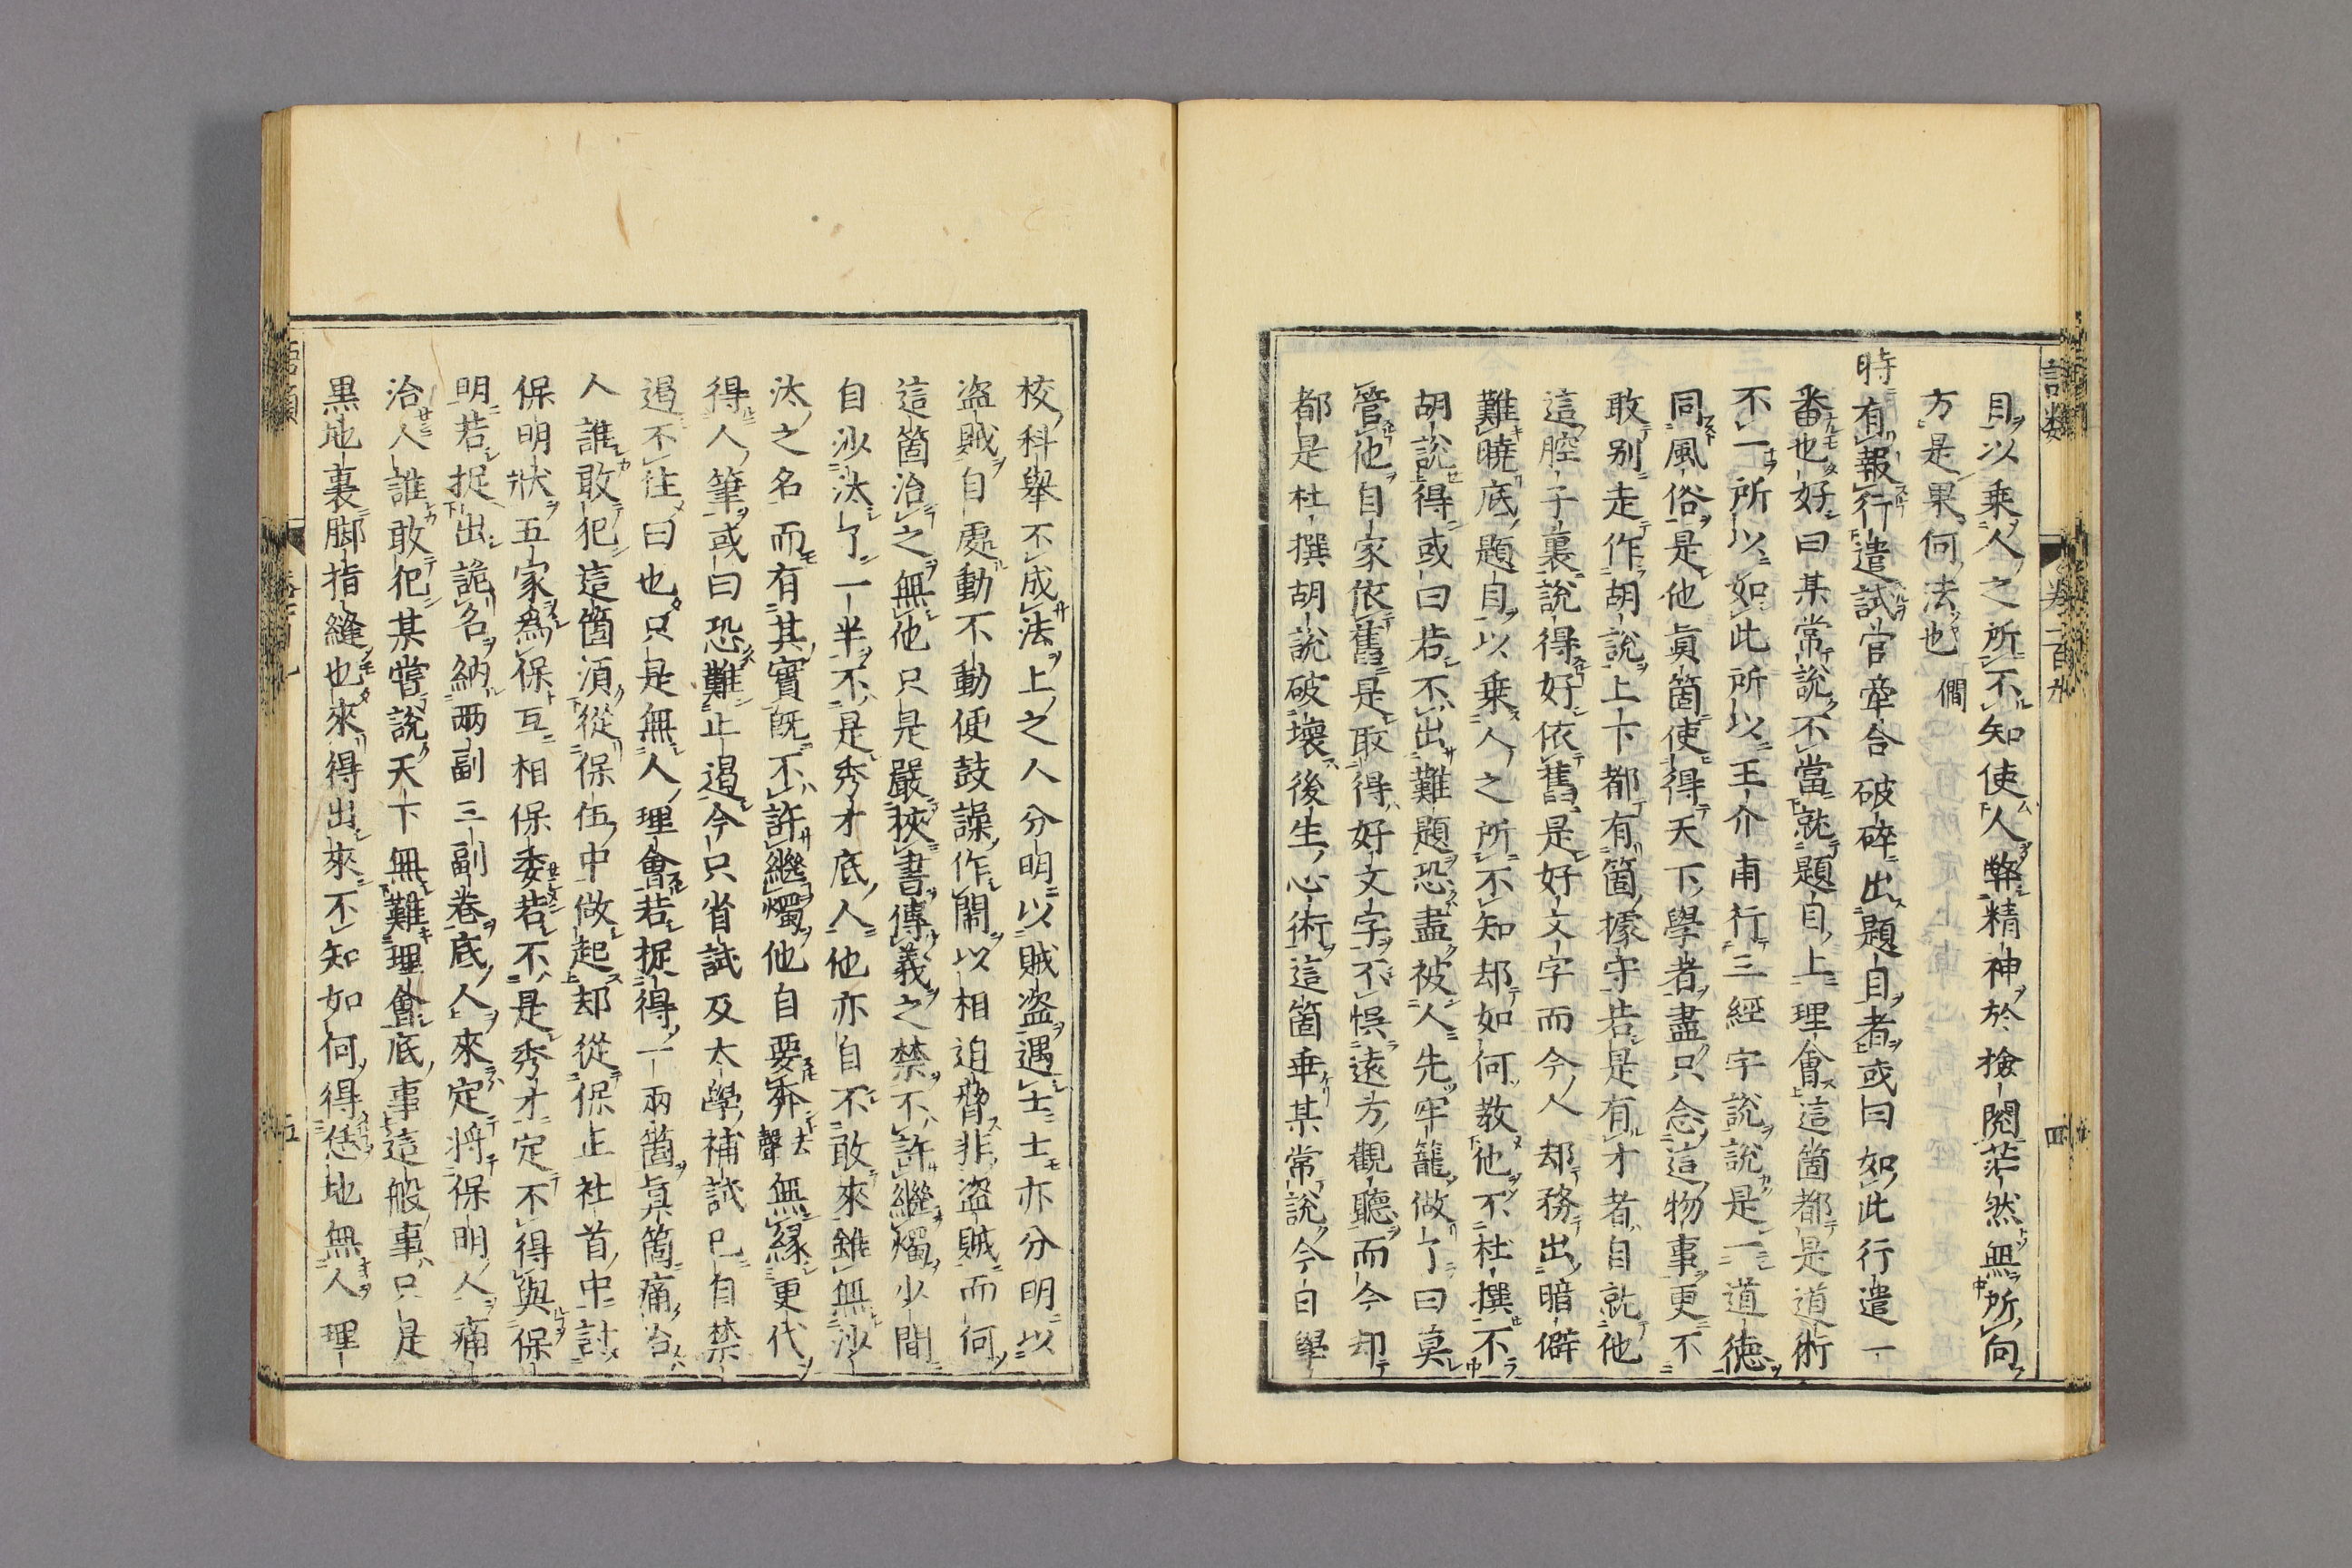 語類 卷一百九 四
目以乗人之所不知使人弊精神於撿閱茫然無所向
方是果何法也 僩
時有報行遣試官牽合破碎出題目者或曰如此行遣一
番也好曰某常說不當就題目上理會這箇都是道術
不一所以如此所以王介甫行三經字說說是一道德
同風俗是他眞箇使得天下學者盡只念這物事更不
敢别走作胡說上下都有箇據守若是有才者自就他
這腔子裏說得好依舊是好文字而今人却務出暗僻
難曉底題目以乗人之所不知却如何教他不杜撰不
胡說得或曰若不出難題恐盡被人先牢籠做了曰莫
管他自家依舊是取得好文字不悞遠方觀聽而今却
都是杜撰胡說破壞後生心術這箇乖某常說今日學
校科舉不成法上之人分明以賊盗遇士士亦分明以
盗賊自處動不動便鼓譟作鬧以相迫脅非盗賊而何
這箇治之無他只是嚴挾書傳義之禁不許繼燭少間
自沙汰了一半不是秀才底人他亦自不敢來雖無沙
汰之名而有其實既不許繼燭他自要奔去聲無縁更代
得人筆或曰恐難止遏今只省試及太學補試已自禁
遏不住曰也只是無人理會若捉得一兩箇眞箇痛治
人誰敢犯這箇須從保伍中做起却從保正社首中討
保明狀五家爲保互相保委若不是秀才定不得與保
明若捉出詭名納兩副三副卷底人來定將保明人痛
治人誰敢犯某嘗說天下無難理會底事這般事只是
黒地裏脚指縫也來得出來不知如何得恁地無人理
語類 五